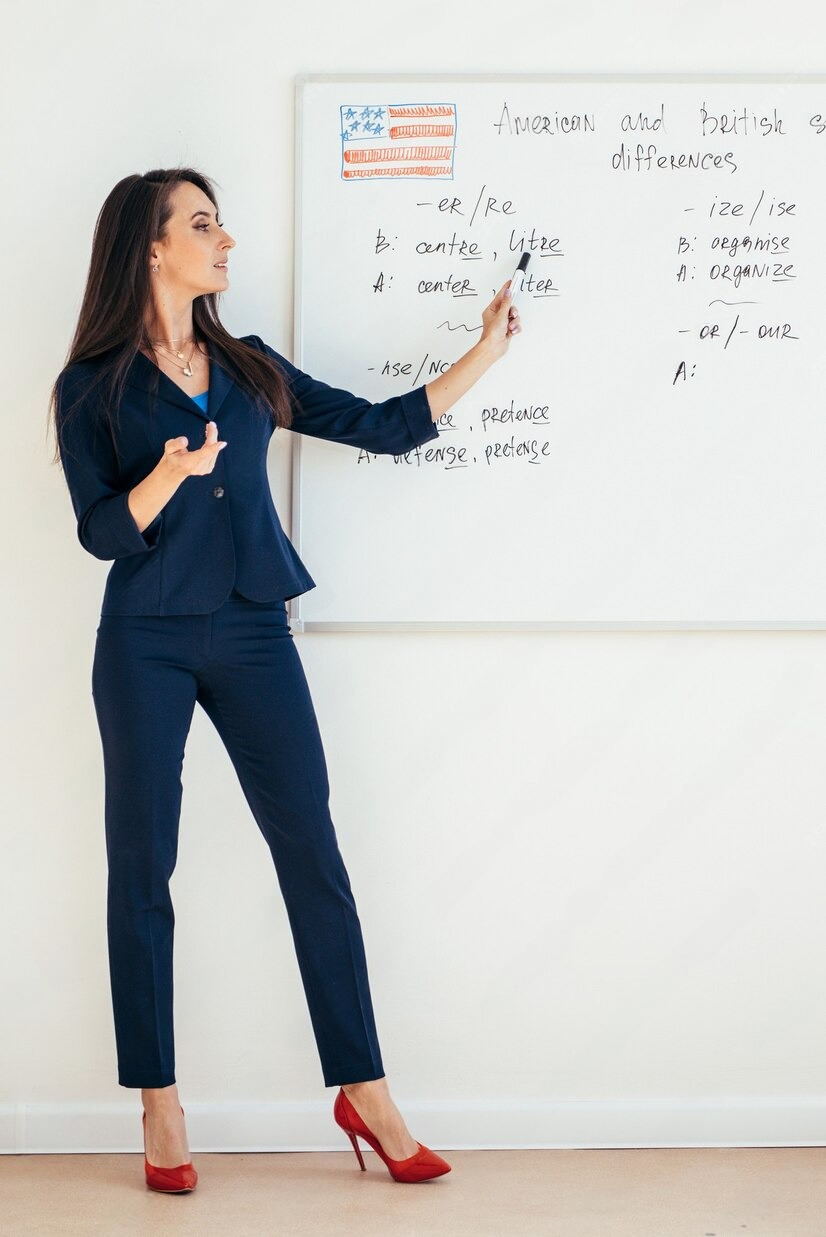 American and British
differences
-ER/RE
B: centre, litre
A: center, liter
-nse/nce
pretence
A: defense, pretense
- ize/ise
B: organise
A: ORGANIZE
- OR/- OUR
A: